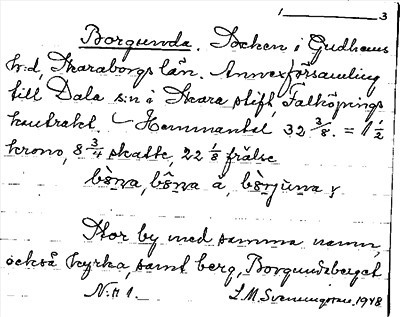 1 — 3
Borgunda. Socken i Gudhems
h:d, Skaraborgs län. Annexförsamling
till Dala s:n i Skara stift, Falköpings
kontrakt. – Hemmantal 32 3/8. = 1 1/2
krono, 8 3/4 skatte, 22 1/8 frälse
Stor by med samma namn,
också kyrka, samt berg, Borgundaberget
N:o 1. L.M. Svenungsson. 1948